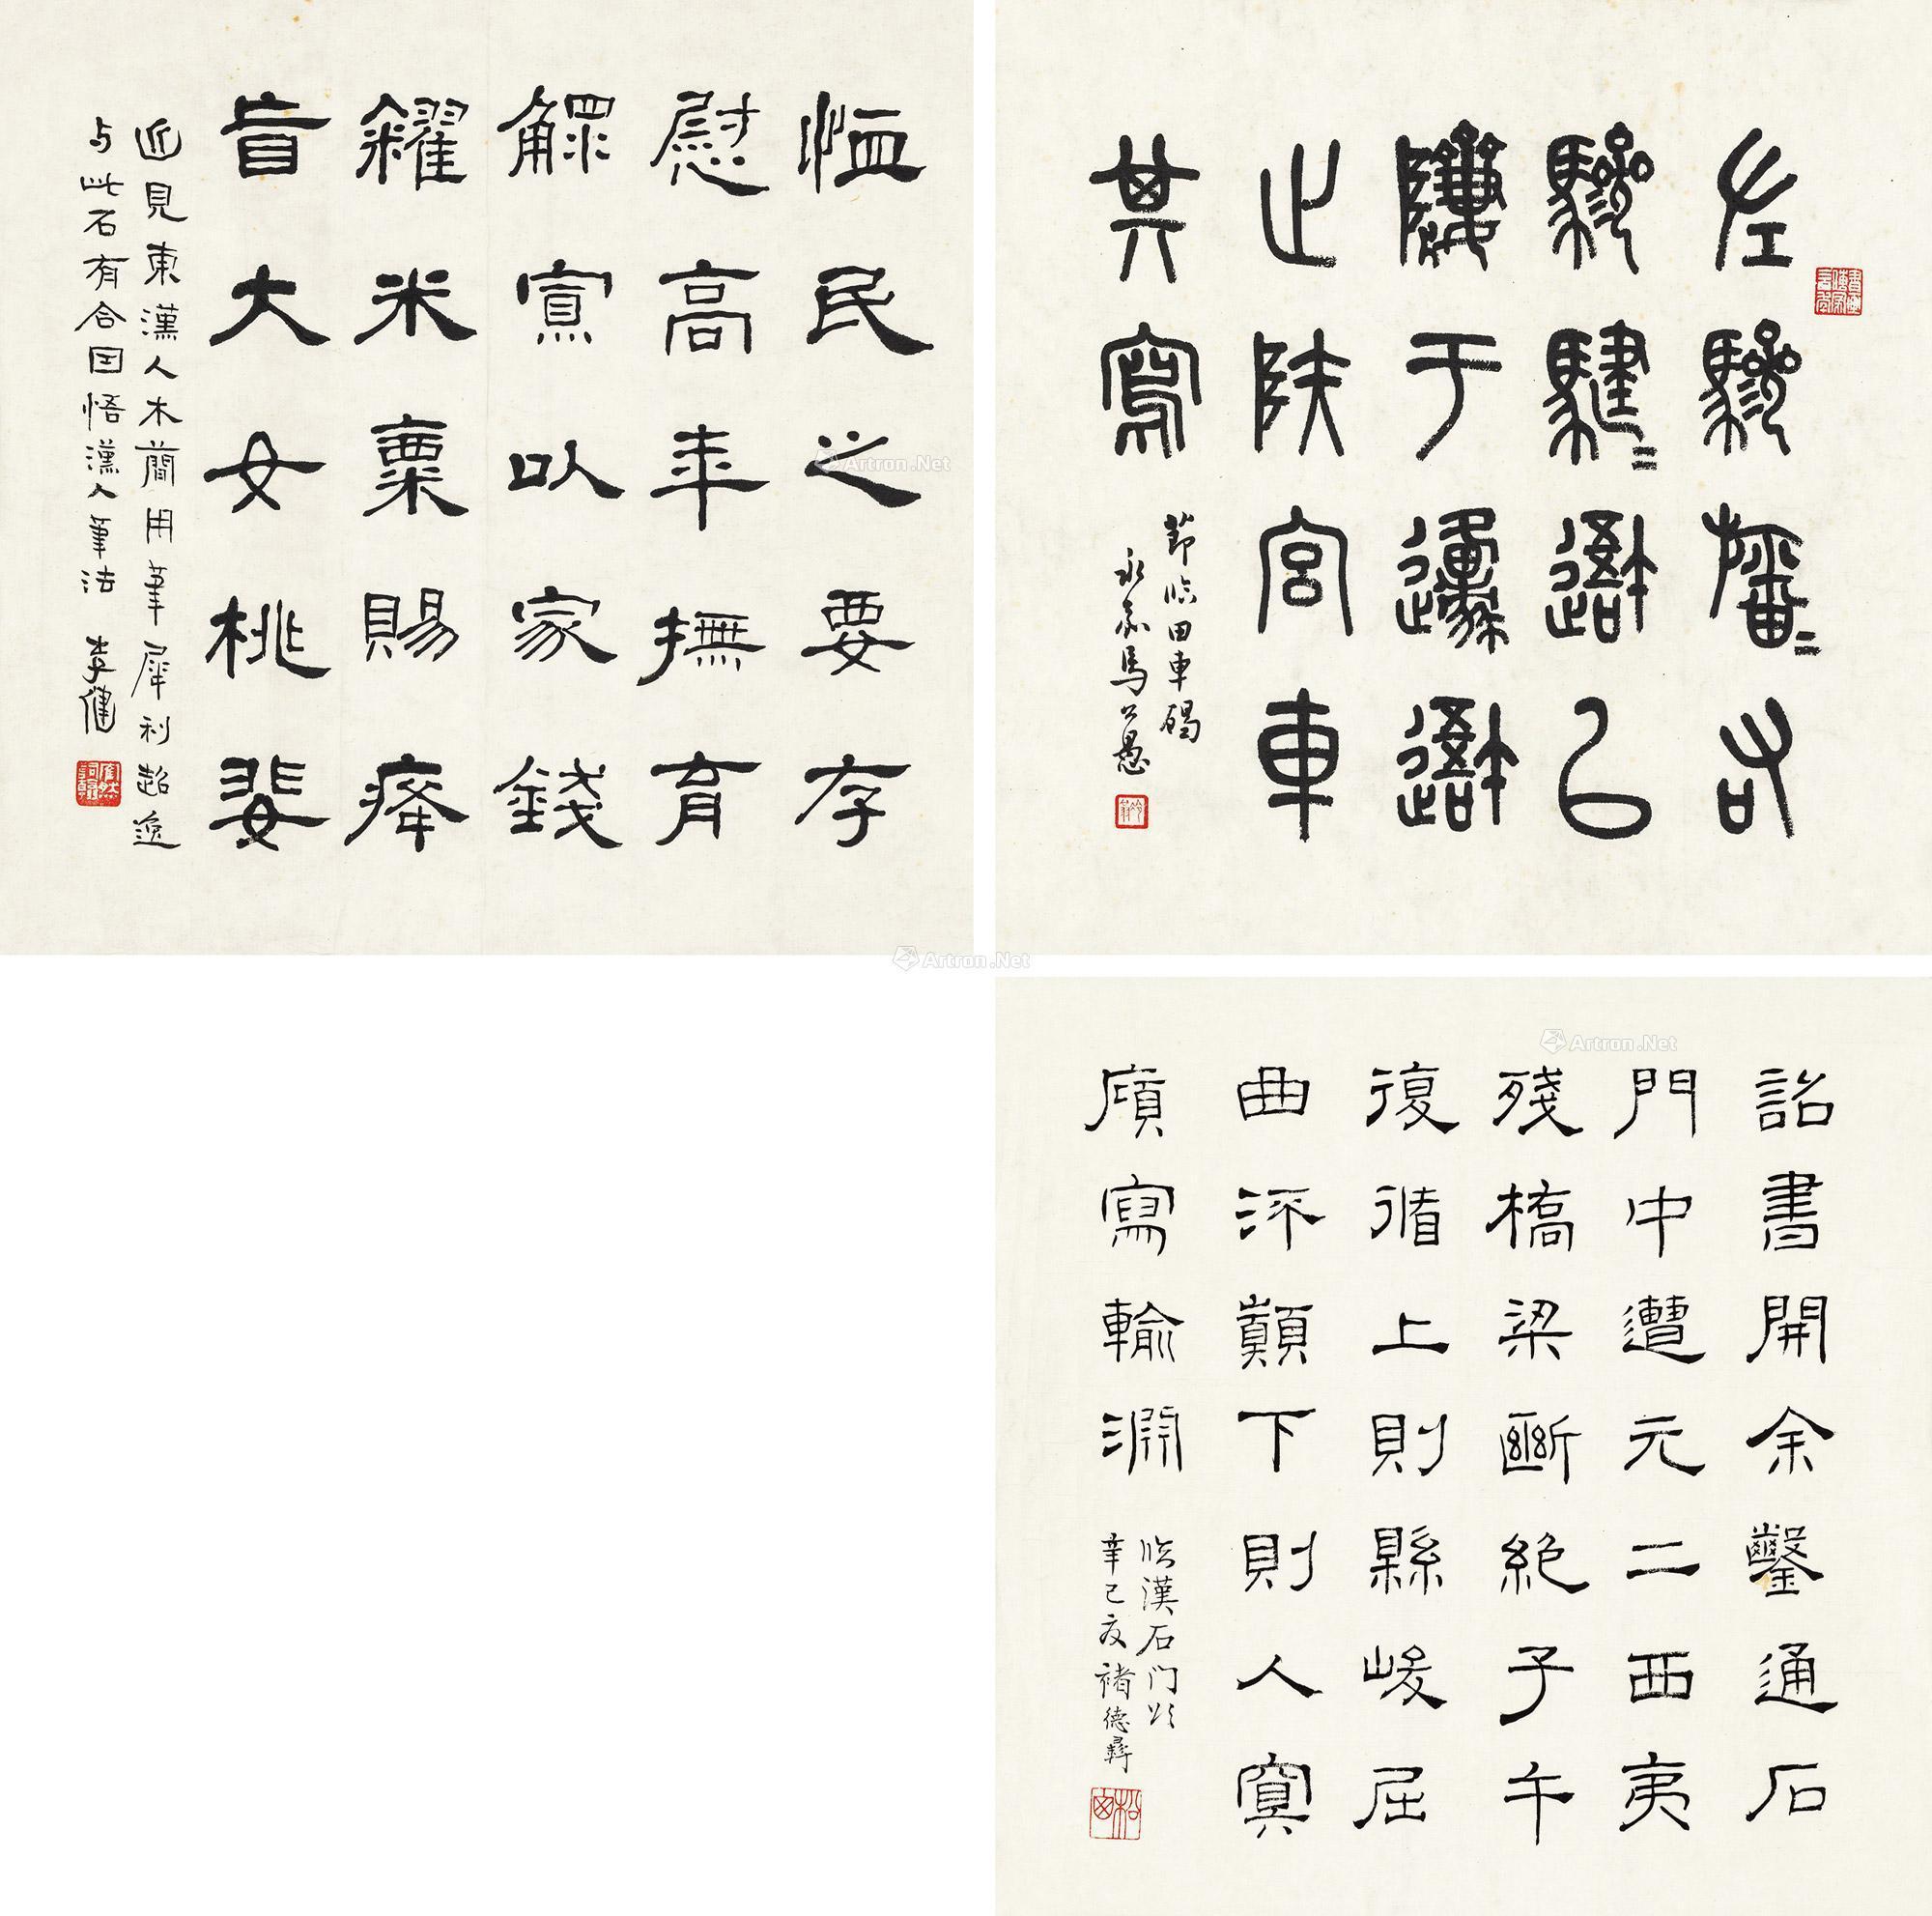 恤民之要存
慰高年撫育
鰥寡以家錢
糴米粟賜癃
盲大女桃婓
近見東漢人木簡用筆犀利超逸
与此石有合因悟漢人筆法 李健
左驂旛=右
驂騝=𨘇以
于邍𨘇
止陜宮車
其寫
節臨田車碣
永嘉馬公愚
詔書開余鑿通石
門中遭元二西夷
殘橋梁斷絶子午
復循上則縣峻屈
曲流顛下則人寞
廎寫輸淵
臨漢石门頌
辛巳夜褚德彝
Artron.Net
Artron.Net
Artron.Net